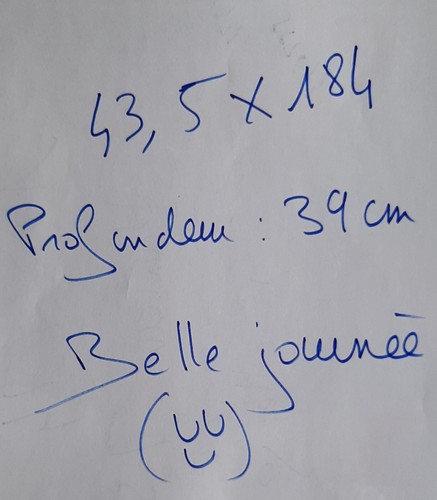 43,5 x 184
Profondeur : 39 cm
Belle journée